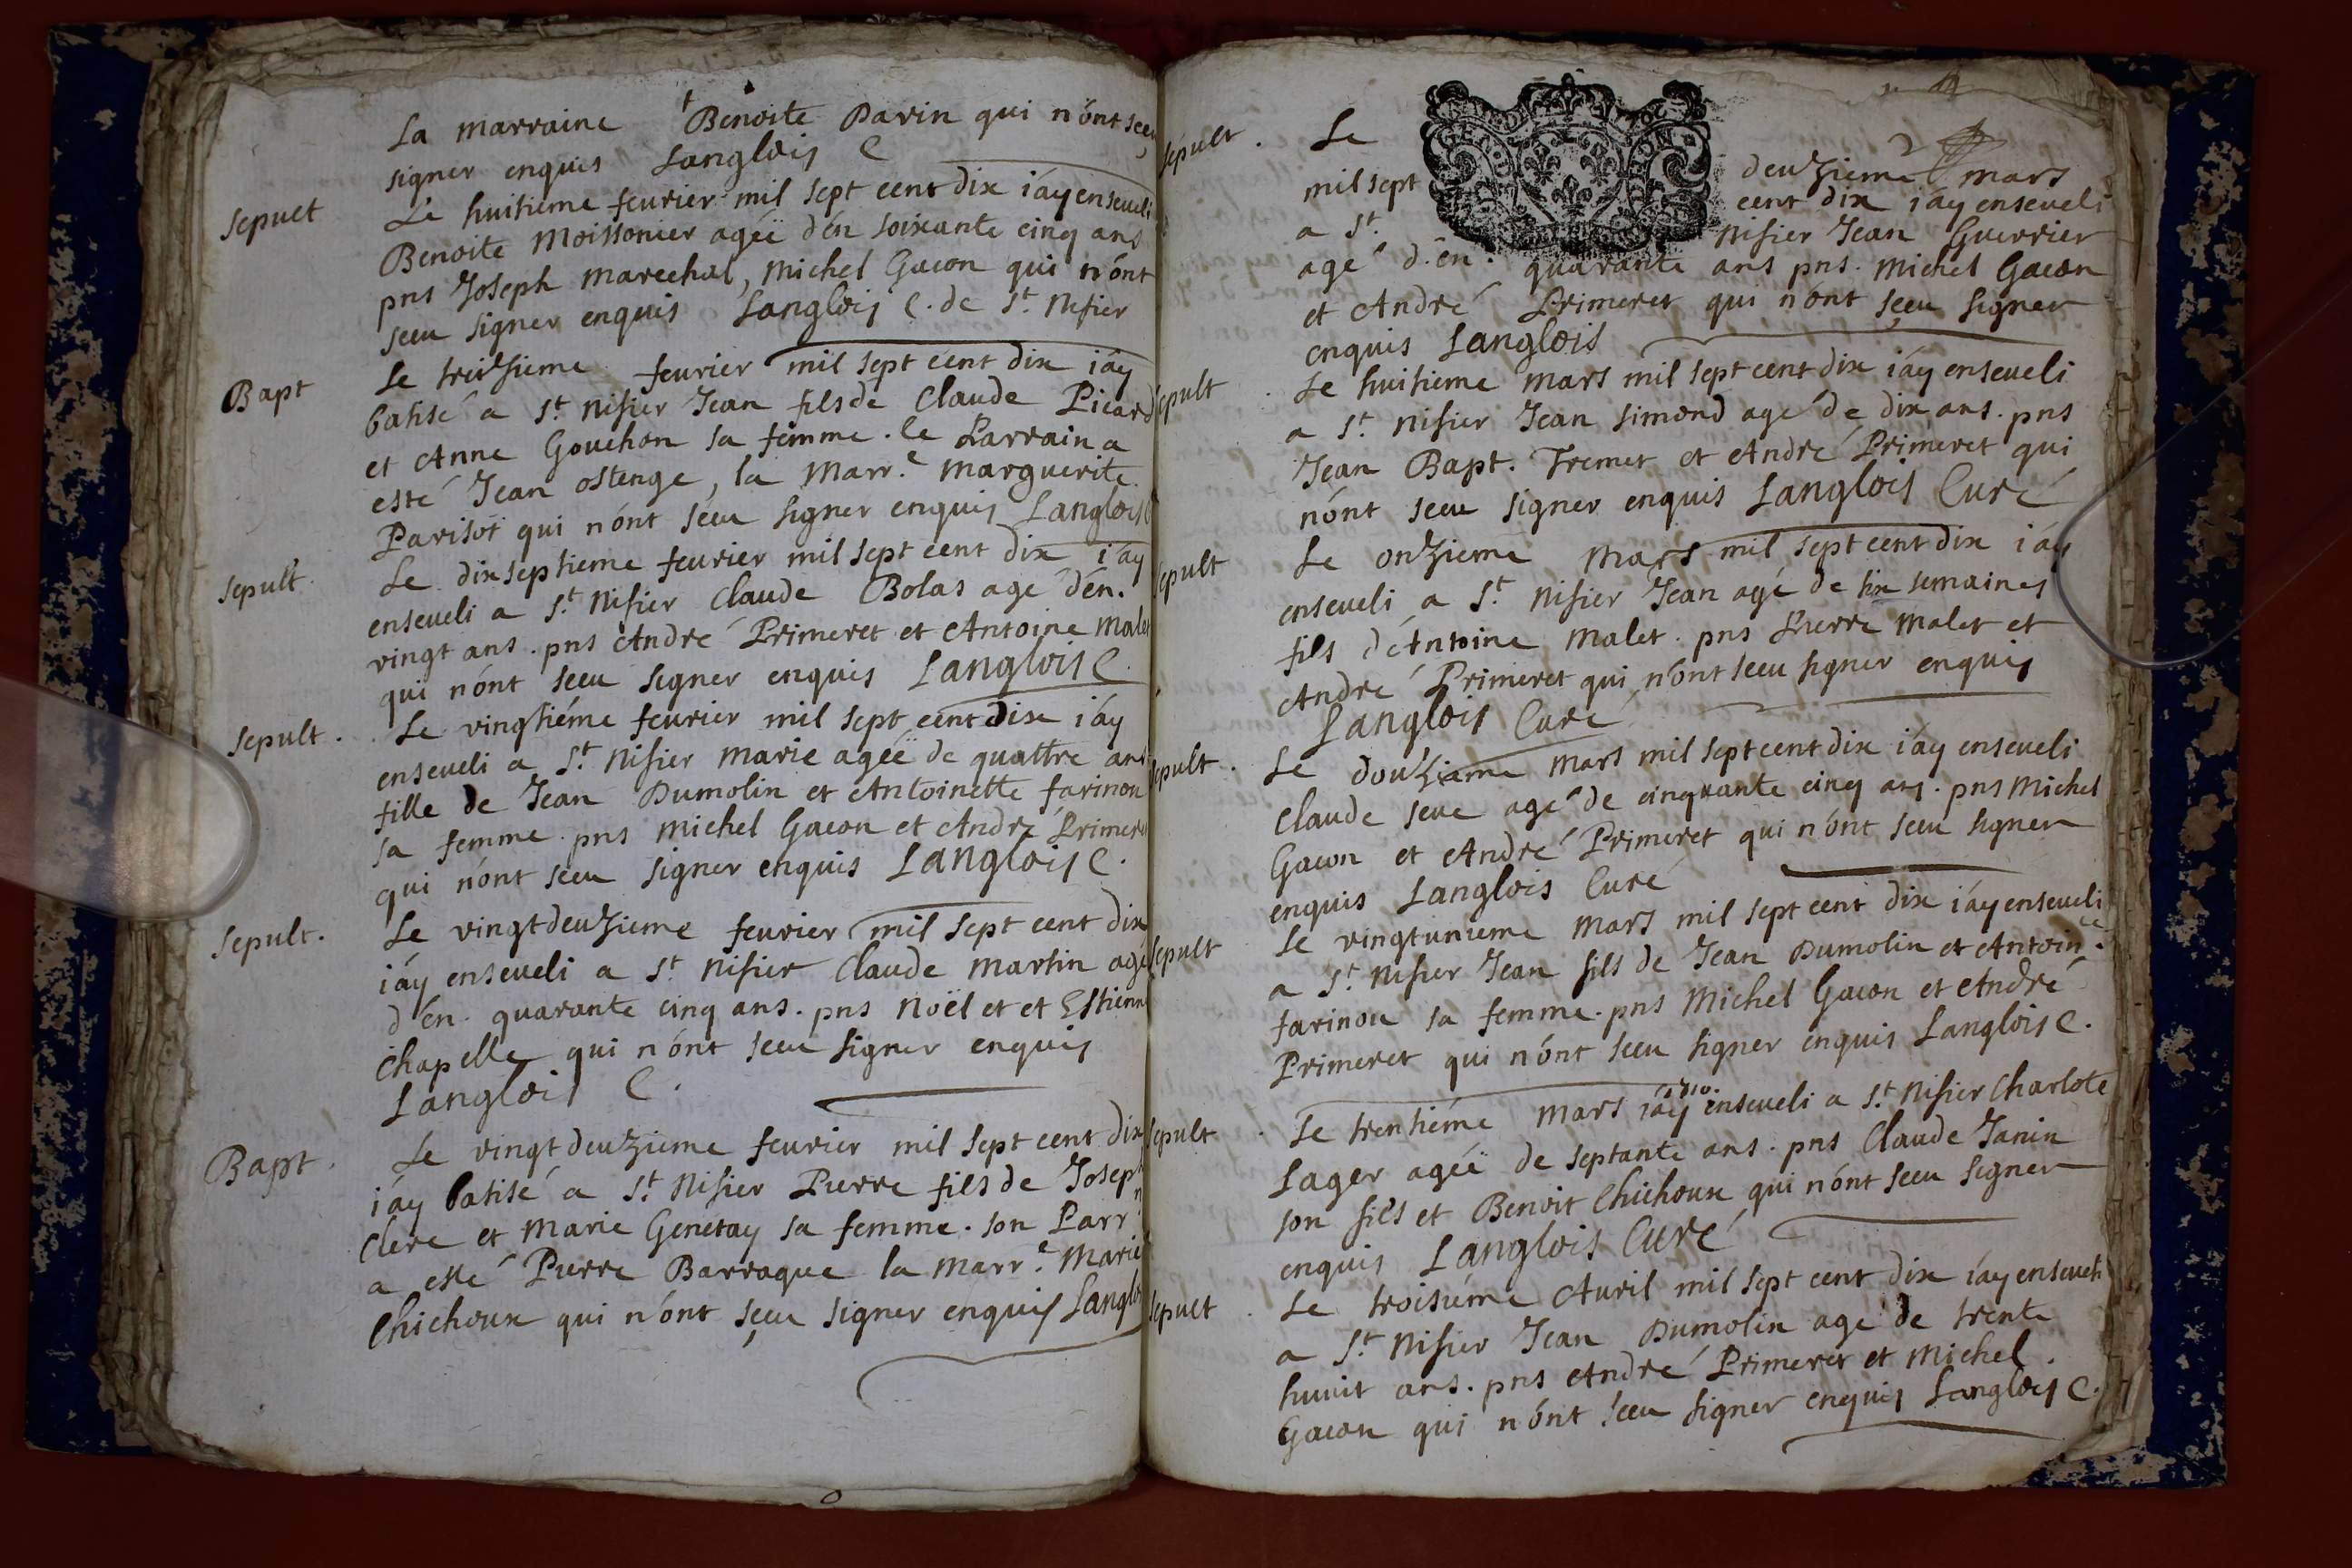 La marraine Benoite Darin qui n'ont sceu
signer enquis Langlois C
sepult Le huitieme feurier mil sept cent dix i'ay enseueli
Benoite Moissonier agée d'en soixante cinq ans
pns Joseph marechal, michel Gacon qui n'ont
sceu signer enquis Langlois C. de St. Nisier
Bapt Le treisieme feurier mil sept cent dix i'ay
batisé a St. nisier Jean fils de Claude Picard
et Anne Gouchon sa femme. le Parrain a
esté Jean ostenge, la Marr.e marguerite
Parisot qui n'ont sceu signer enquis Langlois C
sepult. Le dixseptieme feurier mil sept cent dix i'ay
enseueli a St. Nisier Claude Bolas agé d'en.
vingt ans. pns André Primeret et Antoine Malet
qui n'ont sceu signer enquis Langlois C.
sepult. Le vingtiéme feurier mil sept cent dix i'ay
enseueli a St. Nisier Marie agée de quattre ans
fille de Jean Dumolin et Antoinette farinou
sa femme. pns Michel Gacon et André Primeret
qui n'ont sceu signer enquis Langlois C.
sepult. Le vingtdeuzieme feurier mil sept cent dix
i'ay enseueli a St Nisier Claude Martin agé
d'en. quarante cinq ans. pns Noël et et Estienne
Chapelle qui n'ont sceu signer enquis
Langlois C.
Bapt. Le vingtdeuzieme feurier mil sept cent dix
i'ay batisé a St. Nisier Pierre fils de Joseph
Clere et Marie Genetay sa femme. son Parr.n
a esté Pierre Barraque la Marr.e Marie
Chichoux qui n'ont sçeu signer enquis Langlois
2
sepult. Le deuzieme mars
mil sept cent dix i'ay enseueli
a St. Nisier Jean Guerrier
agé d'en. quarante ans pns. Michel Gacon
et André Primeret qui n'ont sçeu signer
enquis Langlois
sepult. Le huitieme mars mil sept cent dix i'ay enseueli
a St. Nisier Jean Simond agé de dix ans. pns
Jean Bapt. Tremet et André Primeret qui
n'ont sceu signer enquis Langlois Curé
sepult Le onzieme mars mil sept cent dix i'ay
enseueli a St. Nisier Jean agé de six semaines
fils d'Antoine Malet. pns Pierre Malet et
André Primeret qui n'ont sceu signer enquis
Langlois Curé
sepult. Le douzieme mars mil sept cent dix i'ay enseueli
Claude seue agé de cinquante cinq ans. pns Michel
Gacon et André Primeret qui n'ont sceu signer
enquis Langlois Curé
sepult Le vingtunieme Mars mil sept cent dix i'ay enseueli
a St. Nisier Jean fils de Jean Dumolin et Antoin.e
farinou sa femme. pns Michel Gacon et André
Primeret qui n'ont sceu signer enquis Langlois C.
sepult. Le trentiéme Mars 1710. i'ay enseueli a St. Nisier Charlote
Lager agée de septante ans. pns Claude Janin
son fils et Benoit Chichoux qui n'ont sceu signer
enquis Langlois Curé
sepult. Le troisiéme Auril mil sept cent dix i'ay enseueli
a St. Nisier Jean Dumolin agé de trente
huuit ans. pns André Primeret et Michel.
Gacon qui n'ont sceu signer enquis Langlois C.